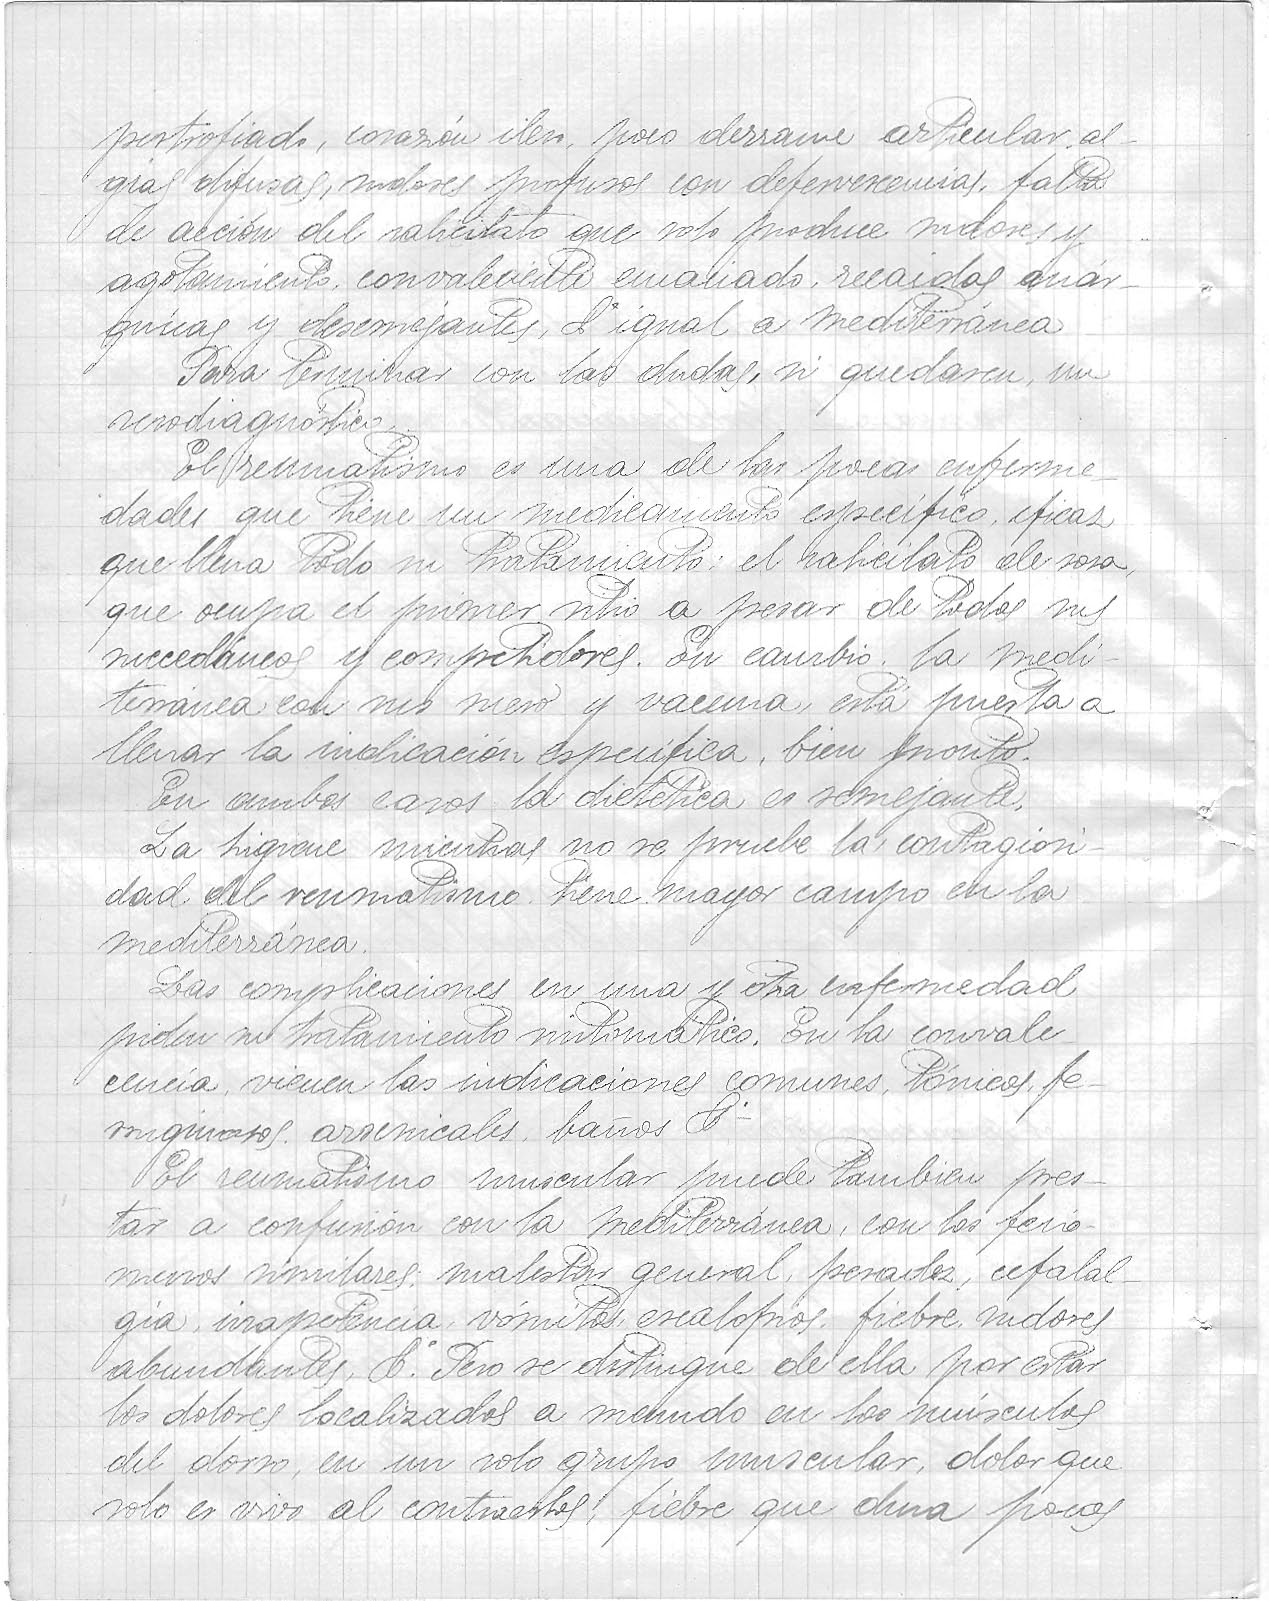 pertrofiado, corazón ileso, poco derrame articular, al-
gias difusas, sudores profusos con defervescencias, falta
de acción del salicilato que solo produce sudores y
agotamiento, convaleciente emaciado, recaidas anár-
quicas y desemejantes, &ª igual a mediterránea
Para terminar con las dudas, si quedasen, un
serodiagnóstico.
El reumatismo es una de las pocas enferme-
dades que tiene un medicamento específico, eficaz
que llena todo su tratamiento: el salicilato de sosa,
que ocupa el primer sitio a pesar de todos sus
sucedáneos y competidores. En cambio, la medi-
terránea con sus suero y vacuna, está puesta a
llenar la indicación específica, bien pronto.
En ambos casos la dietética es semejante.
La higiene mientras no se pruebe la contagiosi-
dad del reumatismo tiene mayor campo en la
mediterránea.
Las complicaciones en una y otra enfermedad
piden su tratamiento sintomático. En la convale-
cencia, vienen las indicaciones comunes, tónicos, fe-
rruginosos, arsenicales, baños &ª
El reumatismo muscular puede tambien pres-
tar a confusión con la mediterránea, con los fenó-
menos similares: malestar general, pesadez, cefalal-
gia, inapetencia, vómitos, escalofrios, fiebre, sudores
abundantes, &ª. Pero se distingue de ella por estar
los dolores localizados a menudo en los músculos
del dorso, en un solo grupo muscular, dolor que
solo es vivo al contraerlos; fiebre que dura pocos